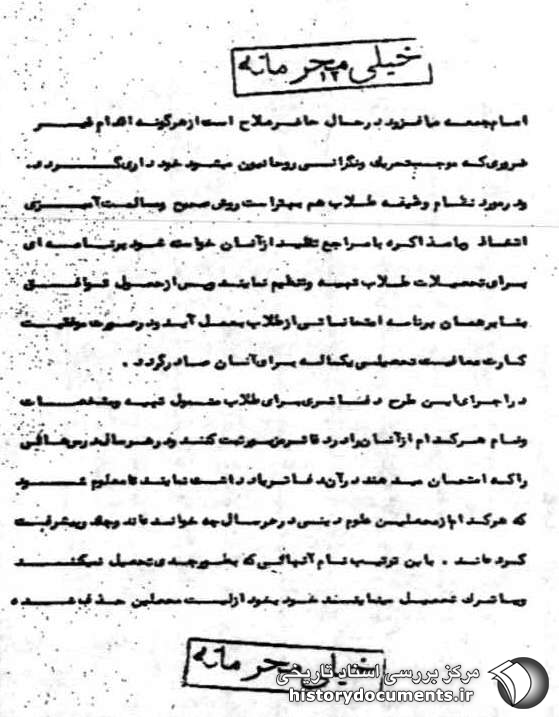 خیلی محرمانه
امام‌جمعه میافزود در حال حاضر صلاح است از هرگونه اقدام غیر
ضروری که موجب تحریک ونگرانی روحانیون میشود خود داری گردد.
ودرمورد نظام وظیفه طلاب هم بهتراست روش صحیح ومسالمت آمیزی
اتخاذ وبا مذاکره با مراجع تقلید ازآنان خواسته شود برنامه ای
برای تحصیلات طلاب تهیه وتنظیم نمایند وپس ازحصول توافق
بنابر همان برنامه امتحاناتی ازطلاب بعمل آید ودرصورت موفقیت
کارت معافیت تحصیلی یکساله برای آنان صادرگردد .
دراجرای این طرح دفاتری برای طلاب مشمول تهیه ومشخصات
ونام هرکدام ازآنان رادردفاترمزبورثبت کنند ودر هرسال درس‌هائی
راکه امتحان میدهند درآن دفاتریادداشت نمایند تامعلوم شود
که هرکدام ازمحصلین علوم دینی درهرسال چه خوانده اند وچه پیشرفتی
کرده اند . باین ترتیب نام آنهائی که بطورجدی تحصیل نمیکنند
ویا ترک تحصیل مینمایند خود بخود ازلیست محصلین حذف شده
خیلی محرمانه
مرکز بررسی اسناد تاریخی
historydocuments.ir